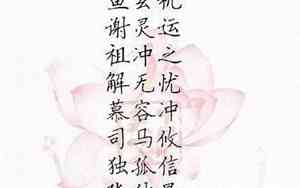 鱼玄机
谢灵运
祖冲之
解无忧
慕容冲
司马攸
独孤信